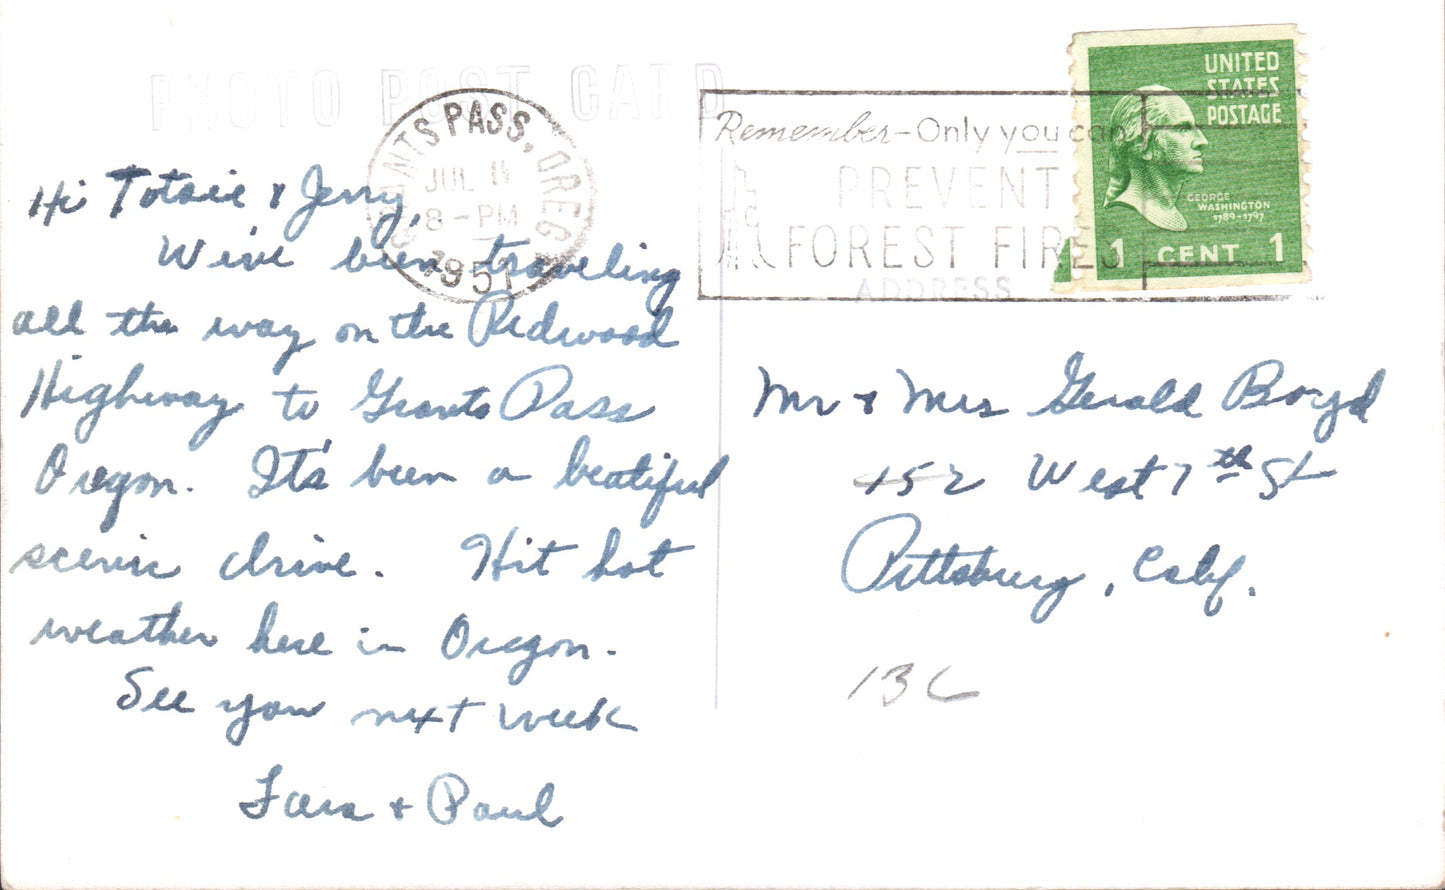 PHOTO POST CARD
GRANTS PASS, OREG
JUL 11
8-PM
1951
Remember-Only you can
PREVENT
FOREST FIRES
UNITED
STATES
POSTAGE
GEORGE
WASHINGTON
1789-1797
1 CENT 1
ADDRESS
Hi Totsie & Jerry,
We've been traveling
all the way on the Redwood
Highway to Grants Pass
Oregon. It's been a beatiful
scenic drive. Hit hot
weather here in Oregon.
See you next week
& Paul
Mr & Mrs Gerald Boyd
152 West 7th St
Pittsburg, Calif.
13C